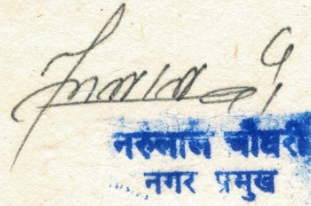 नरुलाल चौधरी
नगर प्रमुख